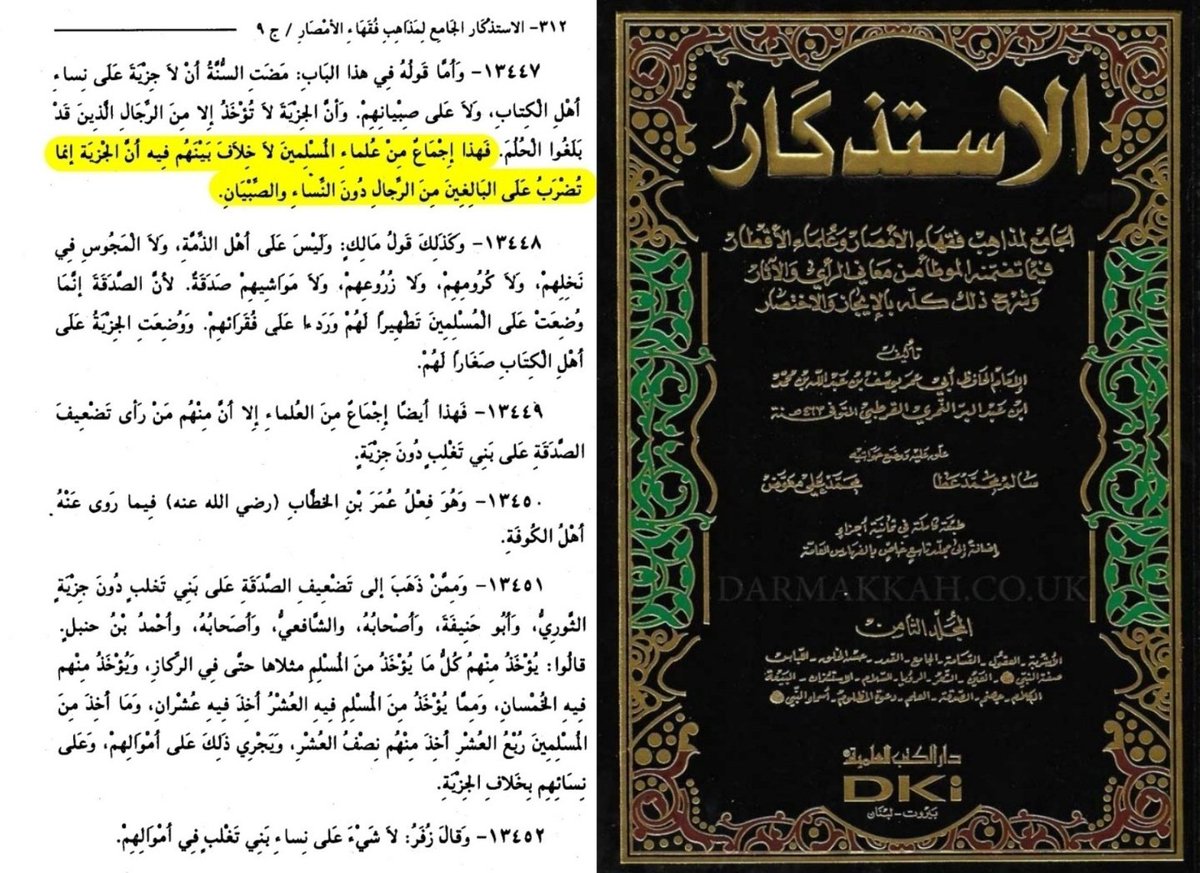 ٣١٢- الاستذكار الجامع لمذاهب فقهاء الأمصار / ج ٩
١٣٤٤٧- وَأَمَّا قَوْلُهُ فِي هذا البَابِ: مَضَتِ السُّنَّةُ أَنْ لاَ جِزْيَةَ عَلَى نِساءِ
أَهْلِ الْكِتابِ، وَلاَ عَلى صِبْيانِهِمْ. وَأَنَّ الجِزْيَةَ لاَ تُؤْخَذُ إلا مِنَ الرِّجَالِ الَّذِينَ قَدْ
بَلَغُوا الْحُلُمَ. فَهذا إِجْمَاعٌ مِنْ عُلماءِ المُسْلِمِينَ لاَ خِلاَفَ بَيْنَهُم فِيه أنَّ الجِزْيَة إنما
تُضْرَبُ عَلَى البَالِغِينَ مِنَ الرَّجالِ دُونَ النِّساءِ والصِّبْيَانِ.
١٣٤٤٨- وَكَذَلِكَ قَولُ مَالِكٍ: وَلَيْسَ عَلى أَهْلِ الذِّمَّةِ، وَلاَ الْمَجُوسِ فِي
نَخلِهِمْ، وَلاَ كُرُومِهِمْ، وَلا زُرُوعِهِمْ، وَلاَ مَوَاشِيهِمْ صَدَقَةٌ. لأنَّ الصَّدَقَةَ إنَّمَا
وُضعَتْ عَلَى الْمُسْلِمِينَ تَطْهِيرًا لَهُمْ وَرَدءا عَلى فُقَرَائهِمْ. وَوُضعَتِ الجِزْيَةُ عَلى
أَهْلِ الْكِتَابِ صَغَارًا لَهُمْ.
١٣٤٤٩- فَهذا أيضًا إِجْمَاعٌ مِنَ العُلَماء إلا أنَّ مِنْهُم مَنْ رَأى تَضْعِيفَ
الصَّدَقَةِ عَلَى بَنِي تَغْلِبٍ دُونَ جِزْيَةٍ.
١٣٤٥٠- وَهُوَ فِعْلُ عُمَرَ بْنِ الخَطَّابِ (رضي الله عنه) فِيما رَوى عَنْهُ
أَهْلُ الكُوفَةِ.
١٣٤٥١- وَمِمَّنْ ذَهَبَ إلى تَضْعِيفِ الصَّدَقَةِ عَلى بَنِي تَغلب دُونَ جِزْيَةٍ
الثَّورِيُّ، وَأَبُو حَنِيفَةَ، وَأَصْحَابُهُ، والشَّافعيُّ، وأَصحَابُهُ، وأحْمدُ بْنُ حنبلٍ.
قالُوا: يُؤْخَذُ مِنْهُمْ كُلُّ مَا يُؤْخَذُ مِنَ المُسْلِمِ مثلاها حتَّى فِي الرِّكازِ، وَيُؤْخَذُ مِنْهُم
فِيهِ الخُمْسانِ، وَمِمَّا يُؤْخَذُ مِنَ المُسْلِمِ فِيهِ العُشْرُ أخِذَ فِيهِ عُشْرانِ، وَمَا أخِذَ مِنَ
المُسْلِمِينَ رُبْعُ العُشْرِ أخِذَ مِنْهُم نِصْفُ العُشْرِ، وَيَجْرِي ذَلِكَ عَلى أمْوَالِهِمْ، وَعَلى
نِسائِهِم بِخَلافِ الجِزْيَةِ.
١٣٤٥٢- وَقَالَ زُفَرُ: لاَ شَيْءَ عَلى نِساءِ بَنِي تَغْلبٍ فِي أمْوَالِهِمْ.
الاستذكار
الجامع لمذاهب فقهاء الأمصار وعلماء الأقطار
فيما تضمنه الموطأ من معاني الرأي والآثار
وشرح ذلك كله بالإيجاز والاختصار
تأليف
الإمام الحافظ أبي عمر يوسف بن عبد الله بن محمد
ابن عبد البر النمري القرطبي المتوفى ٤٦٣ هـ سنة
علق عليه ووضع حواشيه
سالم محمد عطا محمد علي معوض
طبعة كاملة في ثمانية أجزاء
إضافة إلى مجلد تاسع خاص بالفهارس العامة
DARMAKKAH.CO.UK
المجلد الثامن
الأشربة - العقول - القسامة - الجامع - القدر - حسن الخلق - اللباس
صفة النبي ﷺ - العين - الشعر - الرؤيا - السلام - الاستئذان - البيعة
الكلام - جهنم - الصدقة - العلم - دعوة المظلوم - أسماء النبي ﷺ
دار الكتب العلمية
DKi
بيروت - لبنان